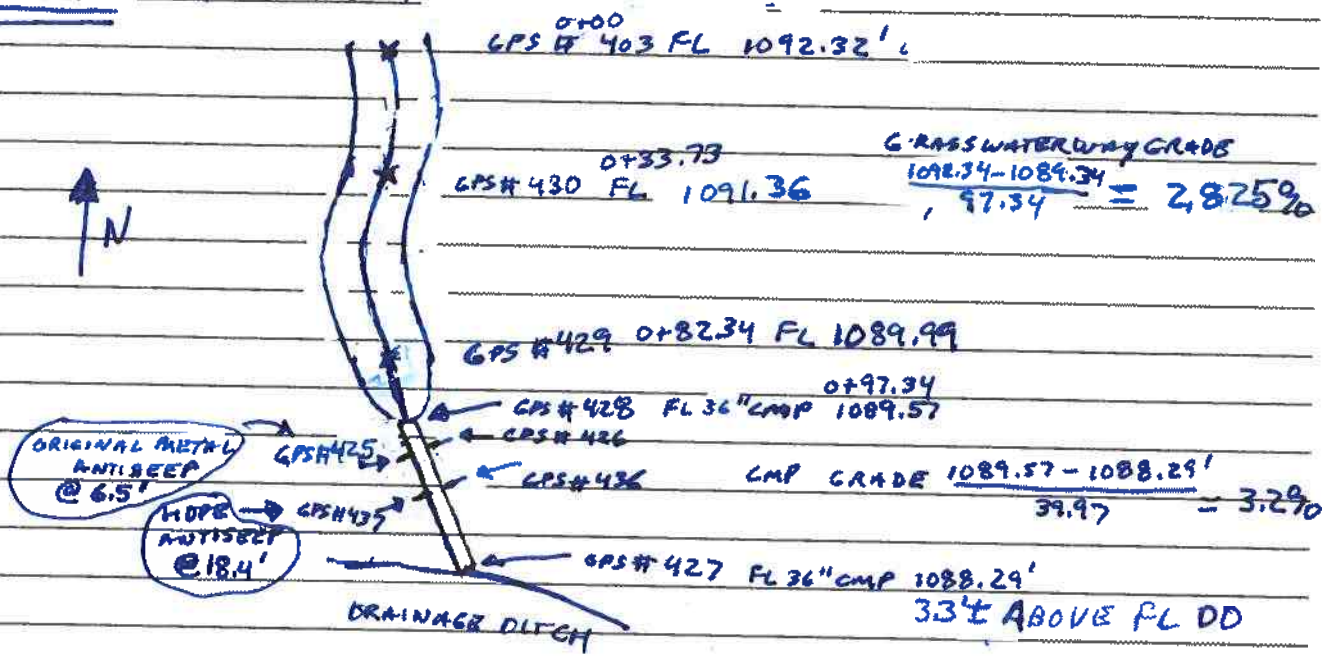 0+00
GPS # 403 FL 1092.32'
0+33.73
GPS# 430 FL 1091.36
GRASSWATERWAY GRADE
1092.34-1089.34
97.34
= 2.825%
N
GPS #429 0+82.34 FL 1089.99
0+97.34
GPS #428 FL 36" CMP 1089.57
GPS # 426
ORIGINAL METAL
ANTISEEP
@ 6.5'
GPS#425
GPS#436
CMP GRADE 1089.57-1088.29'
39.97
= 3.2%
HDPE
ANTISEEP
@ 18.4'
GPS#435
GPS# 427 FL 36" CMP 1088.29'
3.3'± ABOVE FL DD
DRAINAGE DITCH